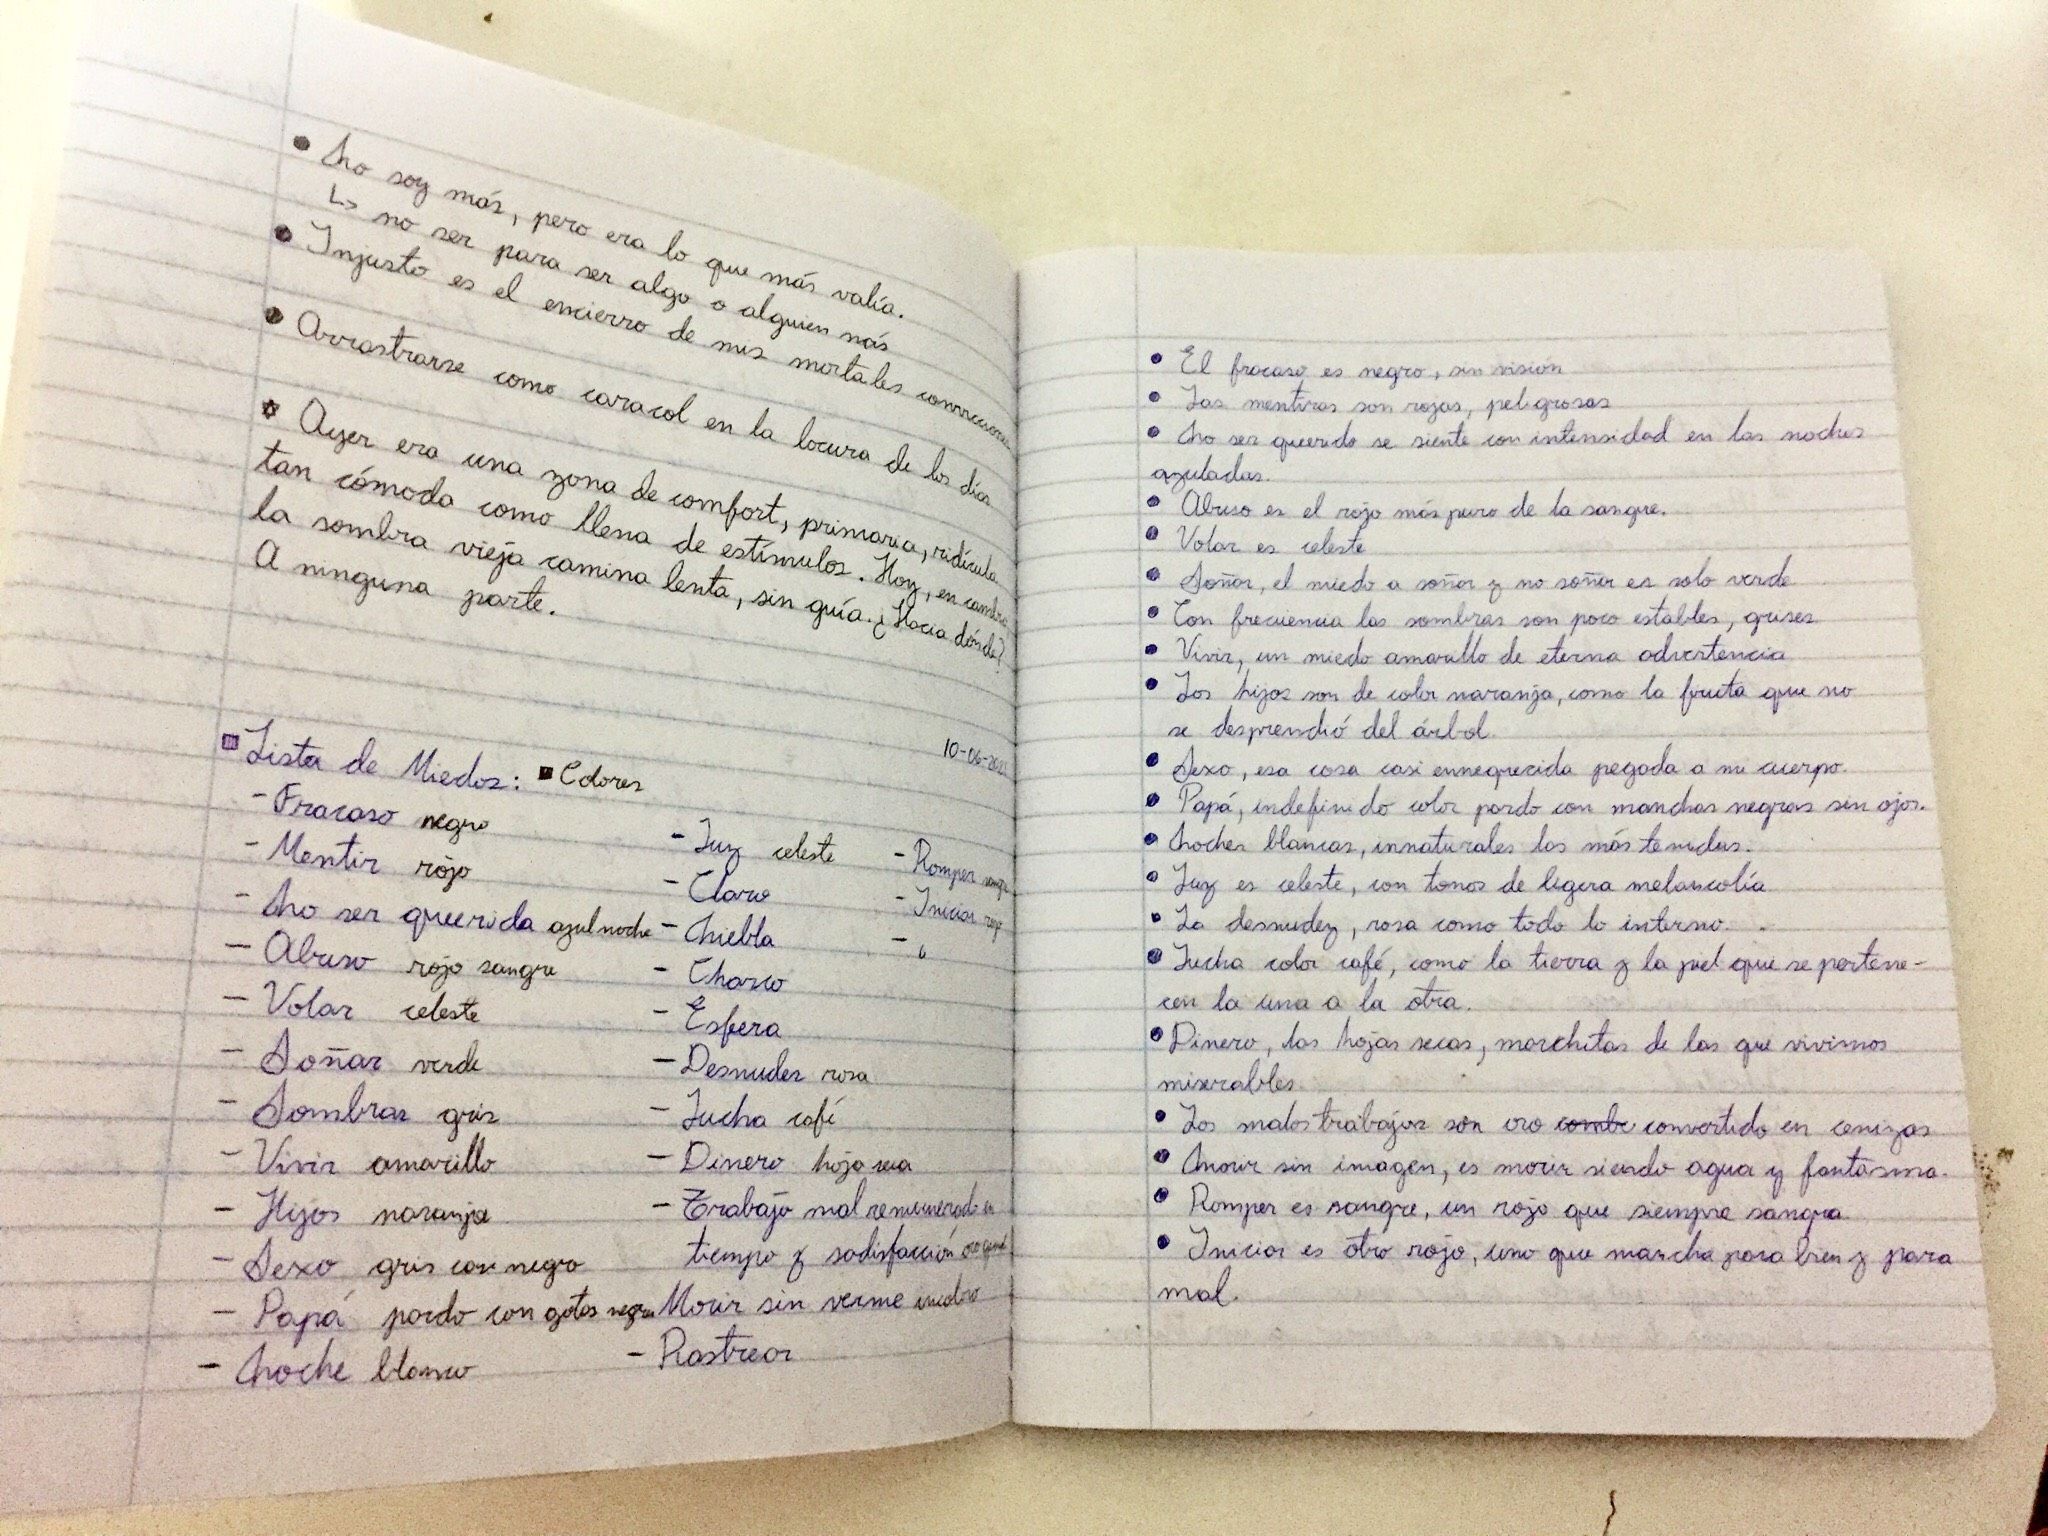 No soy más, pero era lo que más valía.
↳ no ser para ser algo o alguien más
Injusto es el encierro de mis mortales convicciones
Arrastrarse como caracol en la locura de los días
Ayer era una zona de comfort, primaria, ridícula
tan cómoda como llena de estímulos. Hoy, en cambio
la sombra vieja camina lenta, sin guía. ¿Hacia dónde?
A ninguna parte.
10-06-
Lista de Miedos: Colores
- Fracaso negro
- Mentir rojo
- No ser querida azul noche
- Abuso rojo sangre
- Volar celeste
- Soñar verde
- Sombras gris
- Vivir amarillo
- Hijos naranja
- Sexo gris con negro
- Papá pardo con gotas negras
- Noche blanco
- Luz celeste
- Claro
- Niebla
- Charco
- Esfera
- Desnudez rosa
- Lucha café
- Dinero hoja seca
- Trabajo mal remunerado en
tiempo y satisfacción oro
Morir sin verme incoloro
- Rastrear
- Romper sangre
- Iniciar rojo
-
El fracaso es negro, sin visión
Las mentiras son rojas, peligrosas
No ser querido se siente con intensidad en las noches
azuladas.
Abuso es el rojo más puro de la sangre.
Volar es celeste
Soñar, el miedo a soñar y no soñar es solo verde
Con frecuencia las sombras son poco estables, grises
Vivir, un miedo amarillo de eterna advertencia
Los hijos son de color naranja, como la fruta que no
se desprendió del árbol.
Sexo, esa cosa casi ennegrecida pegada a mi cuerpo.
Papá, indefinido color pardo con manchas negras sin ojos.
Noches blancas, innaturales las más temidas.
Luz es celeste, con tonos de ligera melancolía
La desnudez, rosa como todo lo interno.
Lucha color café, como la tierra y la piel que se pertene-
cen la una a la otra.
Dinero, las hojas secas, marchitas de las que vivimos
miserables.
Los malos trabajos son oro convertido en cenizas
Morir sin imagen, es morir siendo agua y fantasma.
Romper es sangre, un rojo que siempre sangra
Iniciar es otro rojo, uno que marcha para bien y para
mal.